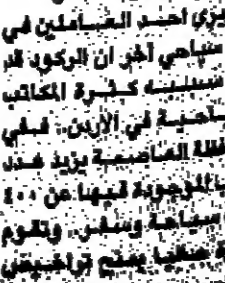 يرى احد العاملين في
سياحي آخر ان الركود قد
سببه كثرة المكاتب
ياحية في الأردن، ففي
العاصمة يزيد عدد
الموجودة فيها عن ٤٠٠
سياحة وسفر، وتقوم
حاليا بمنح تراخيص